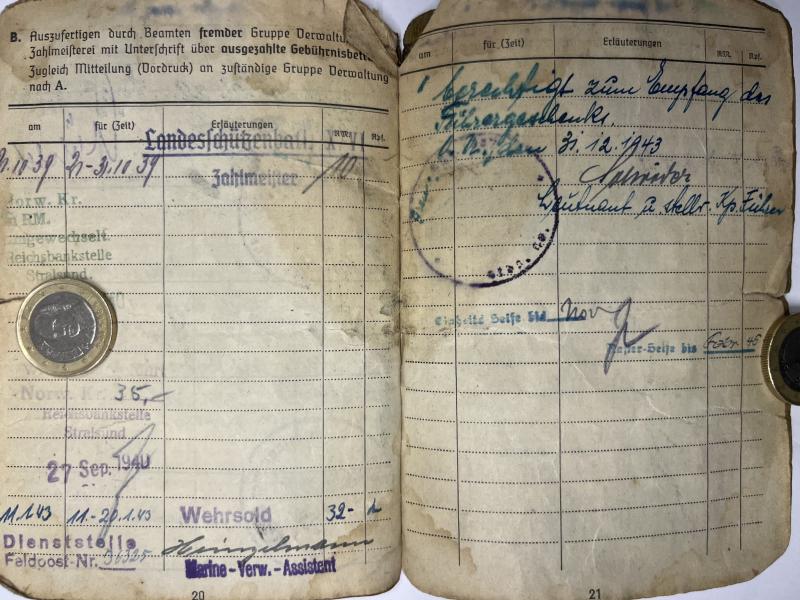 B. Auszufertigen durch Beamten fremder Gruppe Verwaltu
Zahlmeisterei mit Unterschrift über ausgezahlte Gebührnisbet
Zugleich Mitteilung (Vordruck) an zuständige Gruppe Verwaltung
nach A.
am für (Zeit) Erläuterungen RM. Rpf.
Landesschützenbatl.
10.39 21-31.10.39 10
Zahlmeister
Norw. Kr.
RM.
gewechselt.
Reichsbankstelle
Stralsund.
Norw. Kr. 35,-
Reichsbankstelle
Stralsund
27 Sep. 1940
11.1.43 11.-20.1.43 Wehrsold 32-
Dienststelle
Feldpost-Nr. Heinzelmann
Marine-Verw.-Assistent
20
am für (Zeit) Erläuterungen RM. Rpf.
berechtigt zum Empfang des
Führergeschenks
31.12.1943
Leutnant u. stellv. Kp. Führer
Einheits Seife bis Nov
Rasier-Seife bis Febr. 45
21